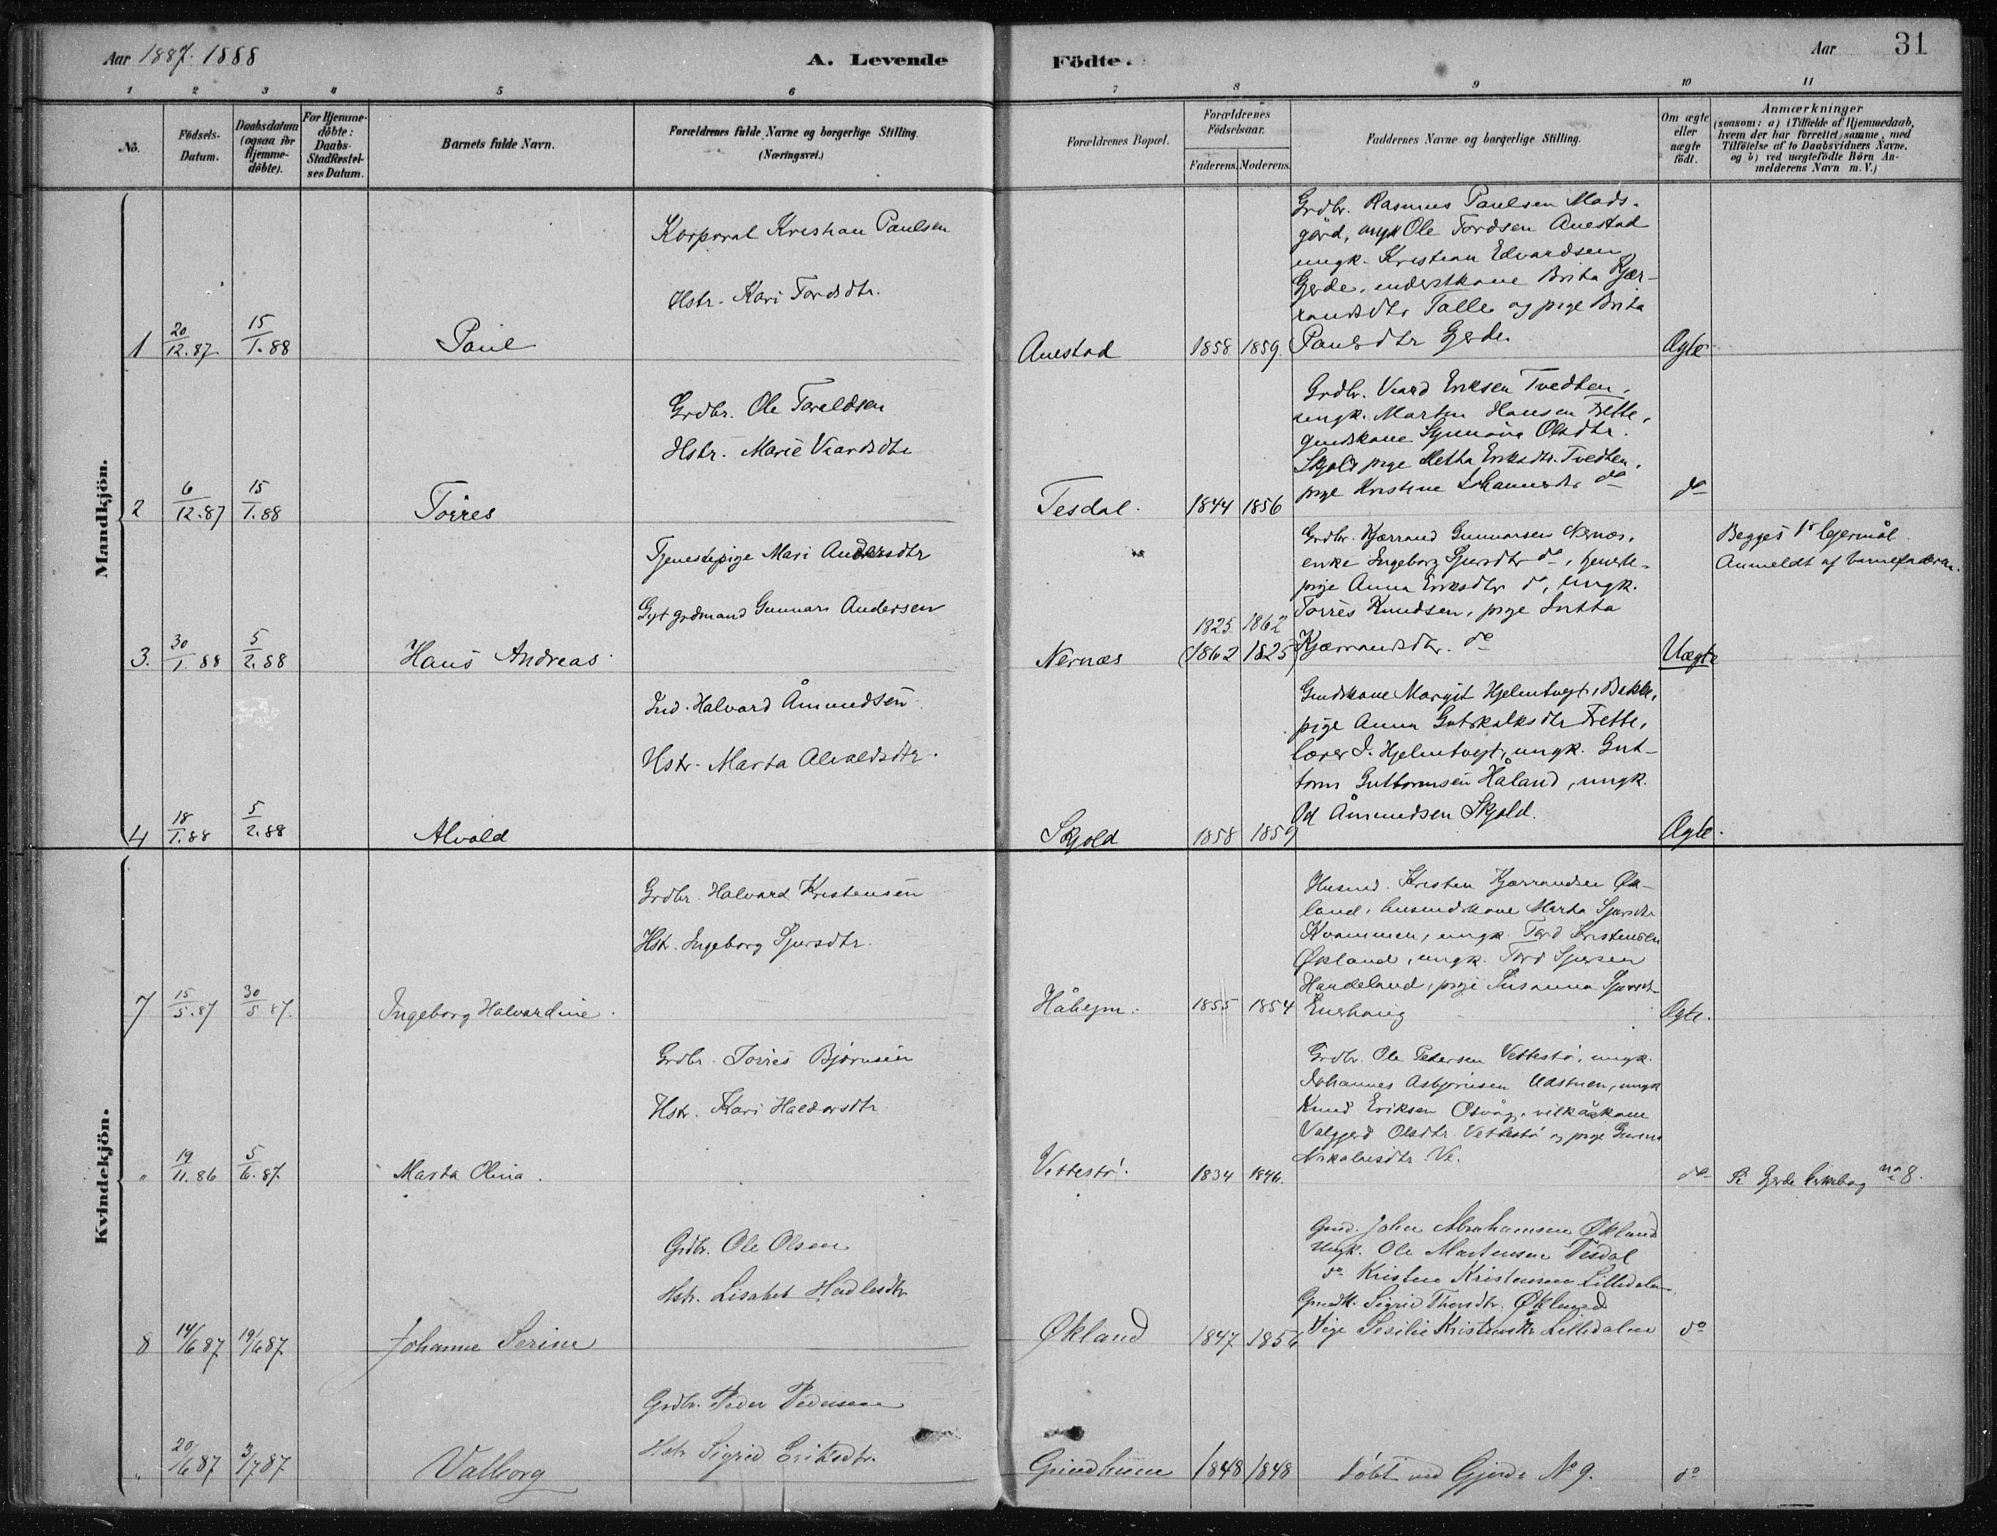 Aar 1887. 1888
A. Levende
Födte.
Aar
31
1 2 3 4 5 6 7 8 9 10 11
No.
Födsels-
Datum.
Daabsdatum
(ogsaa for
Hjemme-
döbte).
For Hjemme-
döbte:
Daabs-
Stadfæstel-
ses Datum.
Barnets fulde Navn.
Forældrenes fulde Navne og borgerlige Stilling.
(Næringsvei.)
Forældrenes Bopæl.
Forældrenes
Födselsaar.
Faderens. Moderens.
Faddernes Navne og borgerlige Stilling.
Om ægte
eller
uægte
födt.
Anmærkninger
(saasom: a) i Tilfælde af Hjemmedaab,
hvem der har forrettet samme, med
Tilföielse af to Daabsvidners Navne,
og b) ved uægtefödte Börn An-
melderens Navn m. V.)
Mandkjön.
1
20/12.87
15/1.88
Paul
Korporal Kristian Paulsen
Hstr. Kari Tordsdtr.
Anestad
1858 1859
Grdbr. Rasmus Paulsen Mads-
gård, ungk Ole Tordsen Anestad
ungk. Kristian Edvardsen
Gjerde, Brita Kjær-
randsdtr Talle og pige Brita
Paulsdtr Gjerde
Ægte
2
6/12.87
15/1.88
Torres
Grdbr. Ole Toraldsen
Hstr. Marie Viardsdtr
Tesdal.
1844 1856
Grdbr. Viard Eriksen Tvedten,
ungk. Martin Hansen Frette,
gmdskone Synnöva Olsdtr.
Skjold pige Metha Eriksdtr. Tvedten,
pige Kristine Johannesdtr do
do
3.
30/1.88
5/2.88
Hans Andreas.
Tjenestepige Mari Andersdtr
Gift grdmand Gunnar Andersen
Nernæs
1825 1862
(1862 1825)
Grdbr. Kjærrand Gunnarsen Nernæs,
enke Ingeborg Sjursdtr do, tjeneste-
pige Anna Eriksdtr do, ungk.
Torres Knudsen, pige
Kjærrandsdtr. do
Uægte
Begges 1s lejermål.
Anmeldt af barnefaderen.
4
18/1.88
5/2.88
Alvald
Ind. Halvard Åmundsen
Hstr. Marta Alvaldsdtr.
Skjold
1858 1859
Gmdskone Margit Hjelmtvegt, Bakke,
pige Anna Gutskalksdtr Frette,
lærer J. Hjelmtvegt, ungk. Gut-
torm Guttormsen Håland, ungk.
Od Åmundsen Skjold.
Ægte.
Kvindekjön.
7
15/5.87
30/5 87.
Ingeborg Halvardine.
Grdbr. Halvard Kristensen
Hstr. Ingeborg Sjursdtr.
Håheim.
1855 1854
Husmd. Kristen Kjærrandsen Øk-
land, husmdskone Marta Sjursdtr
Kvammen, ungk. Tord Kristensen
Økland, ungk. Tord Sjursen
Handeland, pige Susanna Sjursdt-
Enerhaug
Ægte.
"
19/11.86
5/6.87.
Marta Olina.
Grdbr. Torres Bjørnsen
Hstr. Kari Haldorsdtr
Vettestø.
1834 1846.
Grdbr. Ole Pedersen Vettestø, ungk.
Johannes Asbjørnsen Udstuen, ungk
Knud Eriksen Osvåg, vilkåskone
Valgjerd Olsdtr. Vettestø og pige
Nikolaisdtr. Ve.
do
Se Gjerde kirkebog no 8.
8
14/6 87
19/6 87.
Johanne Serine
Grdbr. Ole Olsen
Hstr. Lisabet Hadlesdtr
Økland
1847 1856
Gmd. John Abrahamsen Økland
Ungk. Ole Martensen Tesdal
do Kristen Kristensen Lilledalen
Gmdk. Sigrid Thorsdtr. Økland
Pige Sesilie Kristensdtr Lilledalen
do
"
20/6 87
3/7 87
Valborg
Grdbr. Peder Pedersen
Hstr Sigrid Eriksdtr.
Grindheim
1848 1848
Døbt ved Gjerde No 9.
do